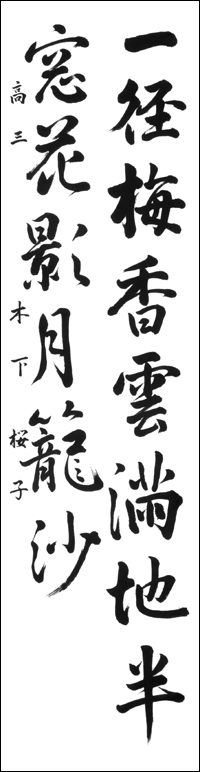 一径梅香雲満地半
窓花影月籠沙
高三 木下 桜子